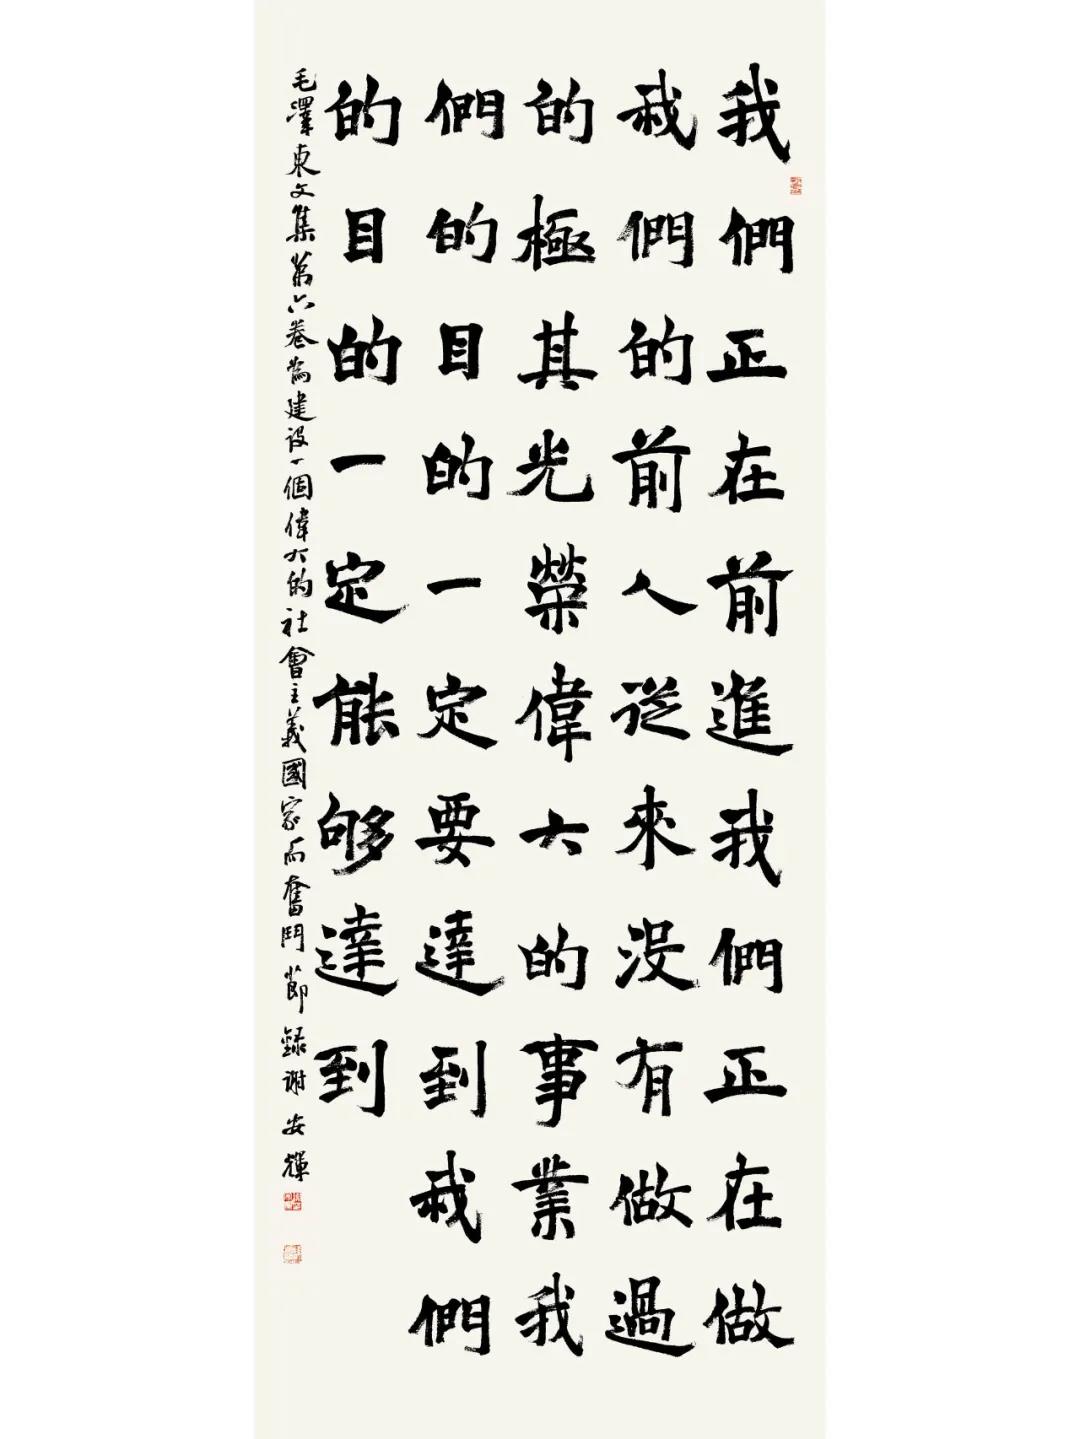 我們正在前進我們正在做
我們的前人從來没有做過
的極其光榮偉大的事業我
們的目的一定要達到我們
的目的一定能够達到
毛澤東文集第六卷為建設一個偉大的社會主義國家而奮鬥節錄谢安輝